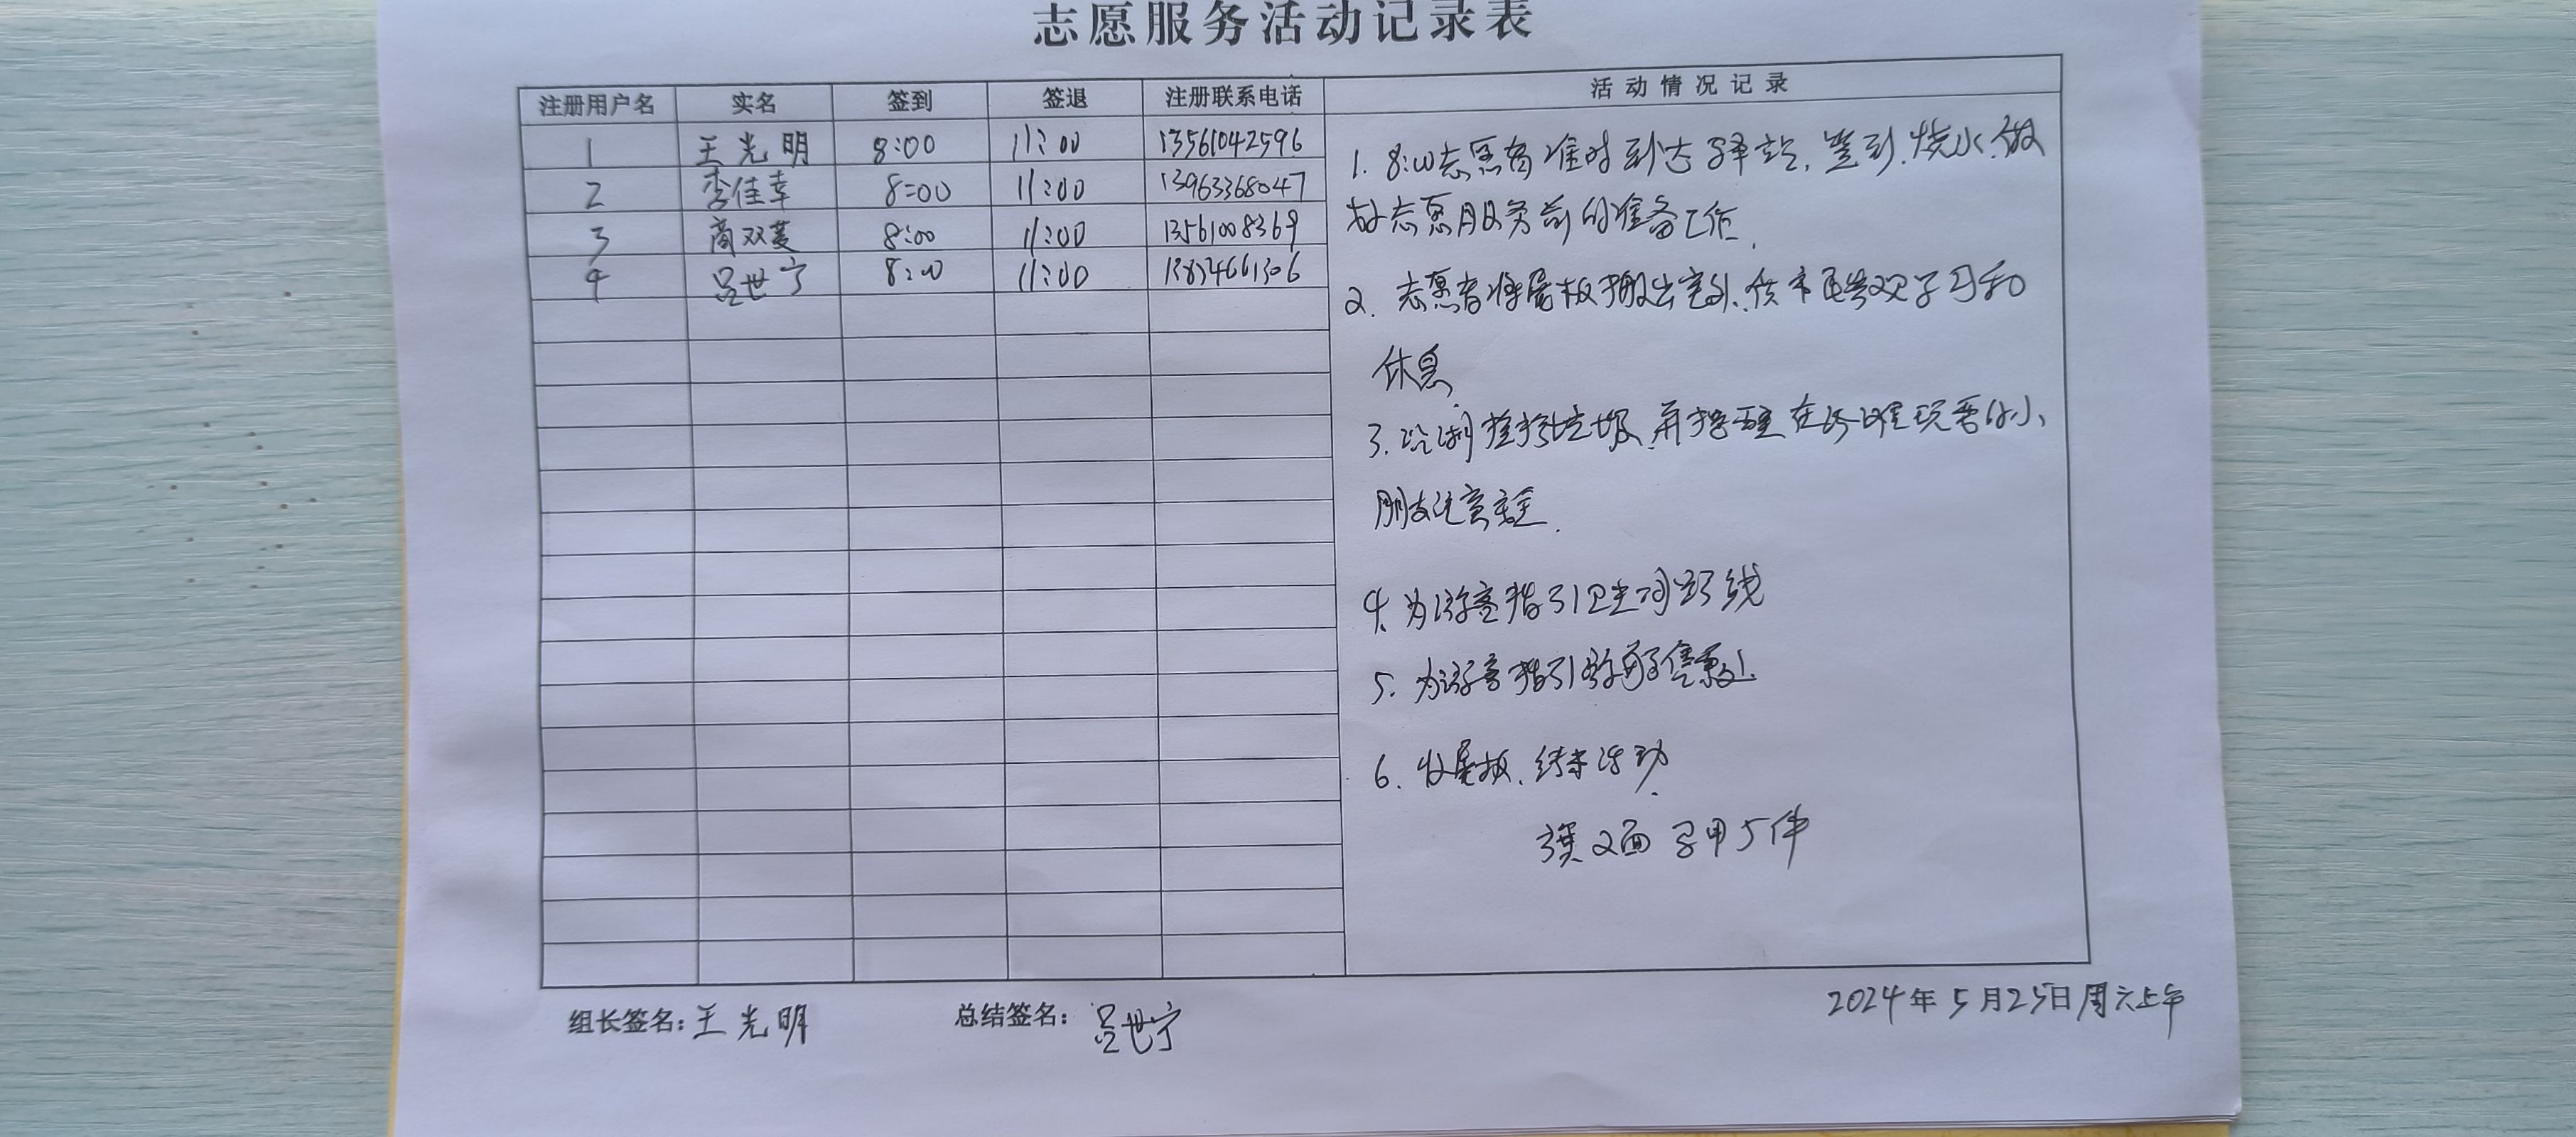 志愿服务活动记录表
注册用户名 实名 签到 签退 注册联系电话 活动情况记录
1 王光明 8:00 11:00 13561042596
2 李佳幸 8:00 11:00 13963368047
3 商双菱 8:00 11:00 13561008369
4 吕世宁 8:00 11:00
1. 8:00志愿者准时到达驿站,签到,烧水,做
好志愿服务前的准备工作.
2. 志愿者将展板搬出室外,供市民参观学习和
休息.
3. 沿湖捡拾垃圾,并提醒在湖堤玩耍的小
朋友注意安全.
4. 为游客指引卫生间路线
5. 为游客指引游船售票处.
6. 收展板,结束活动.
旗2面 马甲5件
组长签名:王光明 总结签名:吕世宁 2024年5月25日周六上午